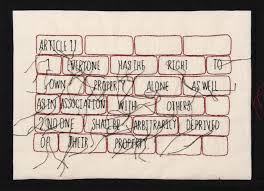 ARTICLE 17
1 EVERYONE HAS THE RIGHT TO
OWN PROPERTY ALONE AS WELL
AS IN ASSOCIATION WITH OTHERS
2 NO ONE SHALL BE ARBITRARILY DEPRIVED
OF THEIR PROPERTY